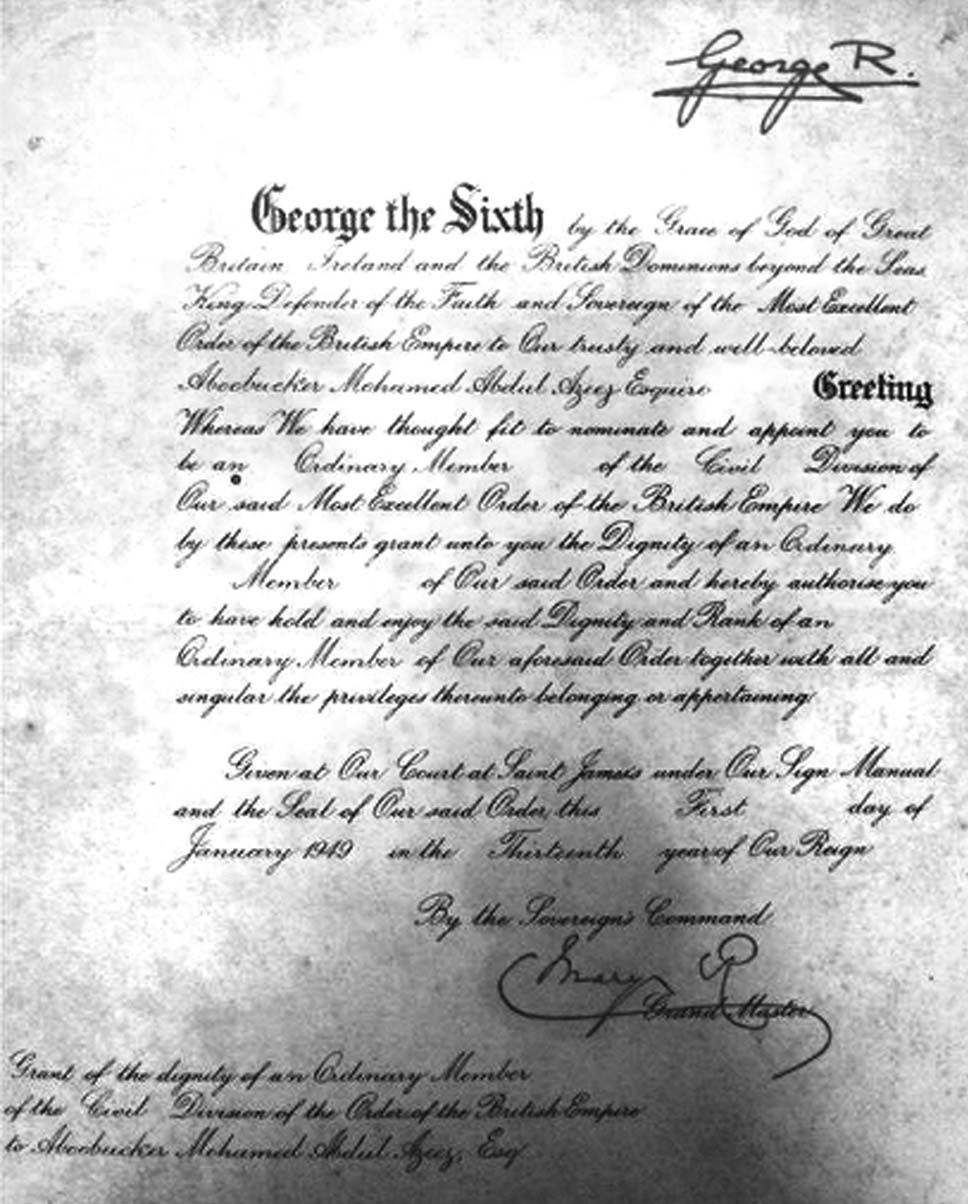 George R.
George the Sixth by the Grace of God of Great
Britain Ireland and the British Dominions beyond the Seas
King Defender of the Faith and Sovereign of the Most Excellent
Order of the British Empire to Our trusty and well-beloved
Aboobucker Mohamed Abdul Azeez Esquire Greeting
Whereas We have thought fit to nominate and appoint you to
be an Ordinary Member of the Civil Division of
Our said Most Excellent Order of the British Empire We do
by these presents grant unto you the Dignity of an Ordinary
Member of Our said Order and hereby authorise you
to have hold and enjoy the said Dignity and Rank of an
Ordinary Member of Our aforesaid Order together with all and
singular the privileges thereunto belonging or appertaining
Given at Our Court at Saint James's under Our Sign Manual
and the Seal of Our said Order this First day of
January 1949 in the Thirteenth year of Our Reign
By the Sovereign's Command
Mary R
Grand Master
Grant of the dignity of an Ordinary Member
of the Civil Division of the Order of the British Empire
to Aboobucker Mohamed Abdul Azeez, Esq